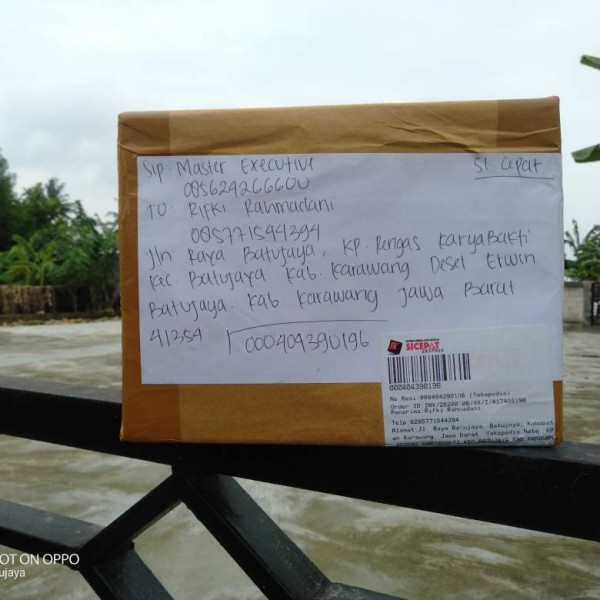 Sip. Master Executive
085624266600
SI CEPAT
TO: Rifki Rahmadani
085771544394
Jln Raya Batujaya, KP. Rengas KaryaBakti
Kec Batujaya Kab. Karawang Desel Erwin
Batujaya. Kab Karawang Jawa Barat
41354 000404390196
SICEPAT
EKSPRES
000404390196
No Resi: 000404390196 (Tokopedia)
Penerima: Rifki Rahmadani
Telp: 6285771544394
Alamat: Jl. Raya Batujaya, Batujaya, Kabupat
an Karawang, Jawa Barat
OT ON OPPO
ujaya